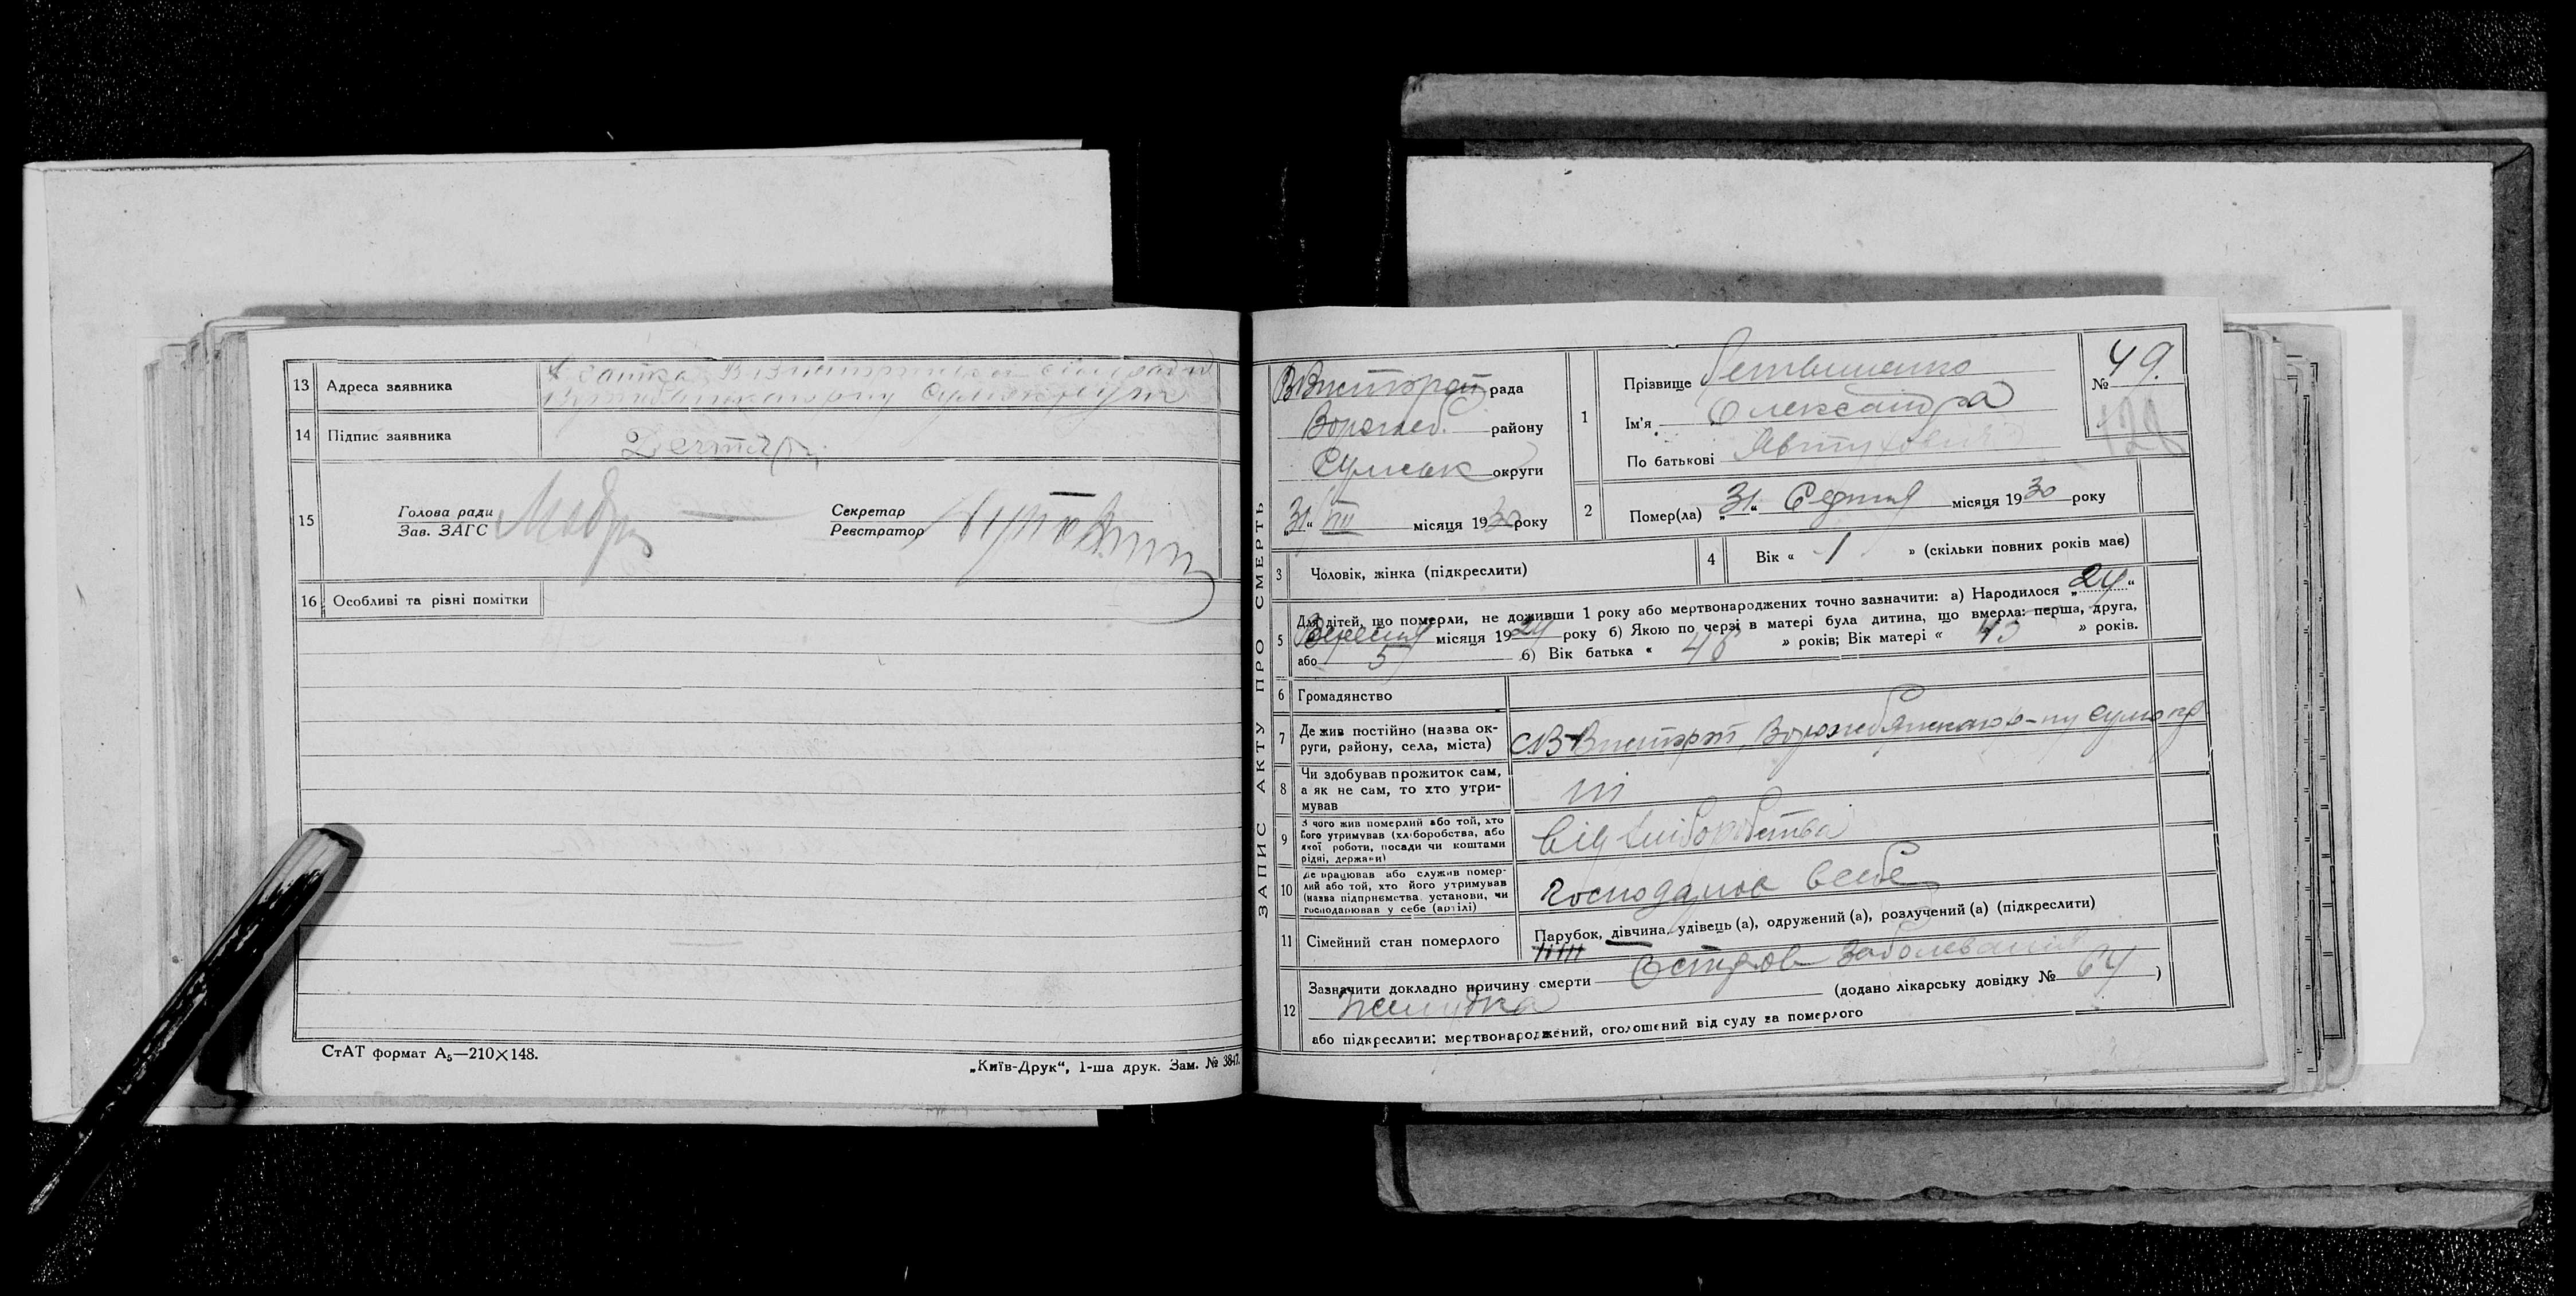 13 Адреса заявника
14 Підпис заявника
15 Голова ради
Зав. ЗАГС
Секретар
Реєстратор
16 Особливі та різні помітки
СтАТ формат А₅—210×148.
„Київ-Друк“, 1-ша друк. Зам. № 3847.
ЗАПИС АКТУ ПРО СМЕРТЬ
рада
Ворожеб. району
Сумськ округи
„31“ VIII місяця 1930 року
1 Прізвище
Ім'я Олександра
По батькові Автуховна
№ 49.
128
2 Помер(ла) „31“ Серпня місяця 1930 року
3 Чоловік, жінка (підкреслити)
4 Вік « 1 » (скільки повних років має)
5 Для дітей, що померли, не доживши 1 року або мертвонароджених точно зазначити: а) Народилося „24“
Вересня місяця 1929 року б) Якою по черзі в матері була дитина, що вмерла: перша, друга,
або 5 б) Вік батька « 48 » років; Вік матері « 43 » років.
6 Громадянство
7 Де жив постійно (назва ок-
руги, району, села, міста)
8 Чи здобував прожиток сам,
а як не сам, то хто утри-
мував
ні
9 З чого жив померлий або той, хто
його утримував (хліборобства, або
якої роботи, посади чи коштами
рідні, держави)
від хліборобства
10 Де працював або служив помер-
лий або той, хто його утримував
(назва підприємства, установи, чи
господарював у себе (артілі)
11 Сімейний стан померлого
Парубок, дівчина, удівець (а), одружений (а), розлучений (а) (підкреслити)
12 Зазначити докладно причину смерти Острое заболевание
желудка (додано лікарську довідку № 64 )
або підкреслити: мертвонароджений, оголошений від суду за померлого